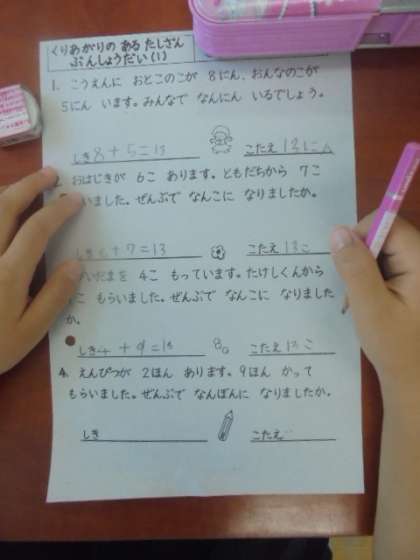 くりあがりの ある たしざん
ぶんしょうだい(1)
1. こうえんに おとこのこが 8にん、おんなのこが
5にん います。みんなで なんにん いるでしょう。
しき 8+5=13 こたえ 13にん
2. おはじきが 6こ あります。ともだちから 7こ
いました。ぜんぶで なんこに なりましたか。
+7=13 こたえ 13こ
を 4こ もっています。たけしくんから
こ もらいました。ぜんぶで なんこに なりました
か。
しき 4+9=13 こたえ 13こ
4. えんぴつが 2ほん あります。9ほん かって
もらいました。ぜんぶで なんぼんに なりましたか。
しき こたえ